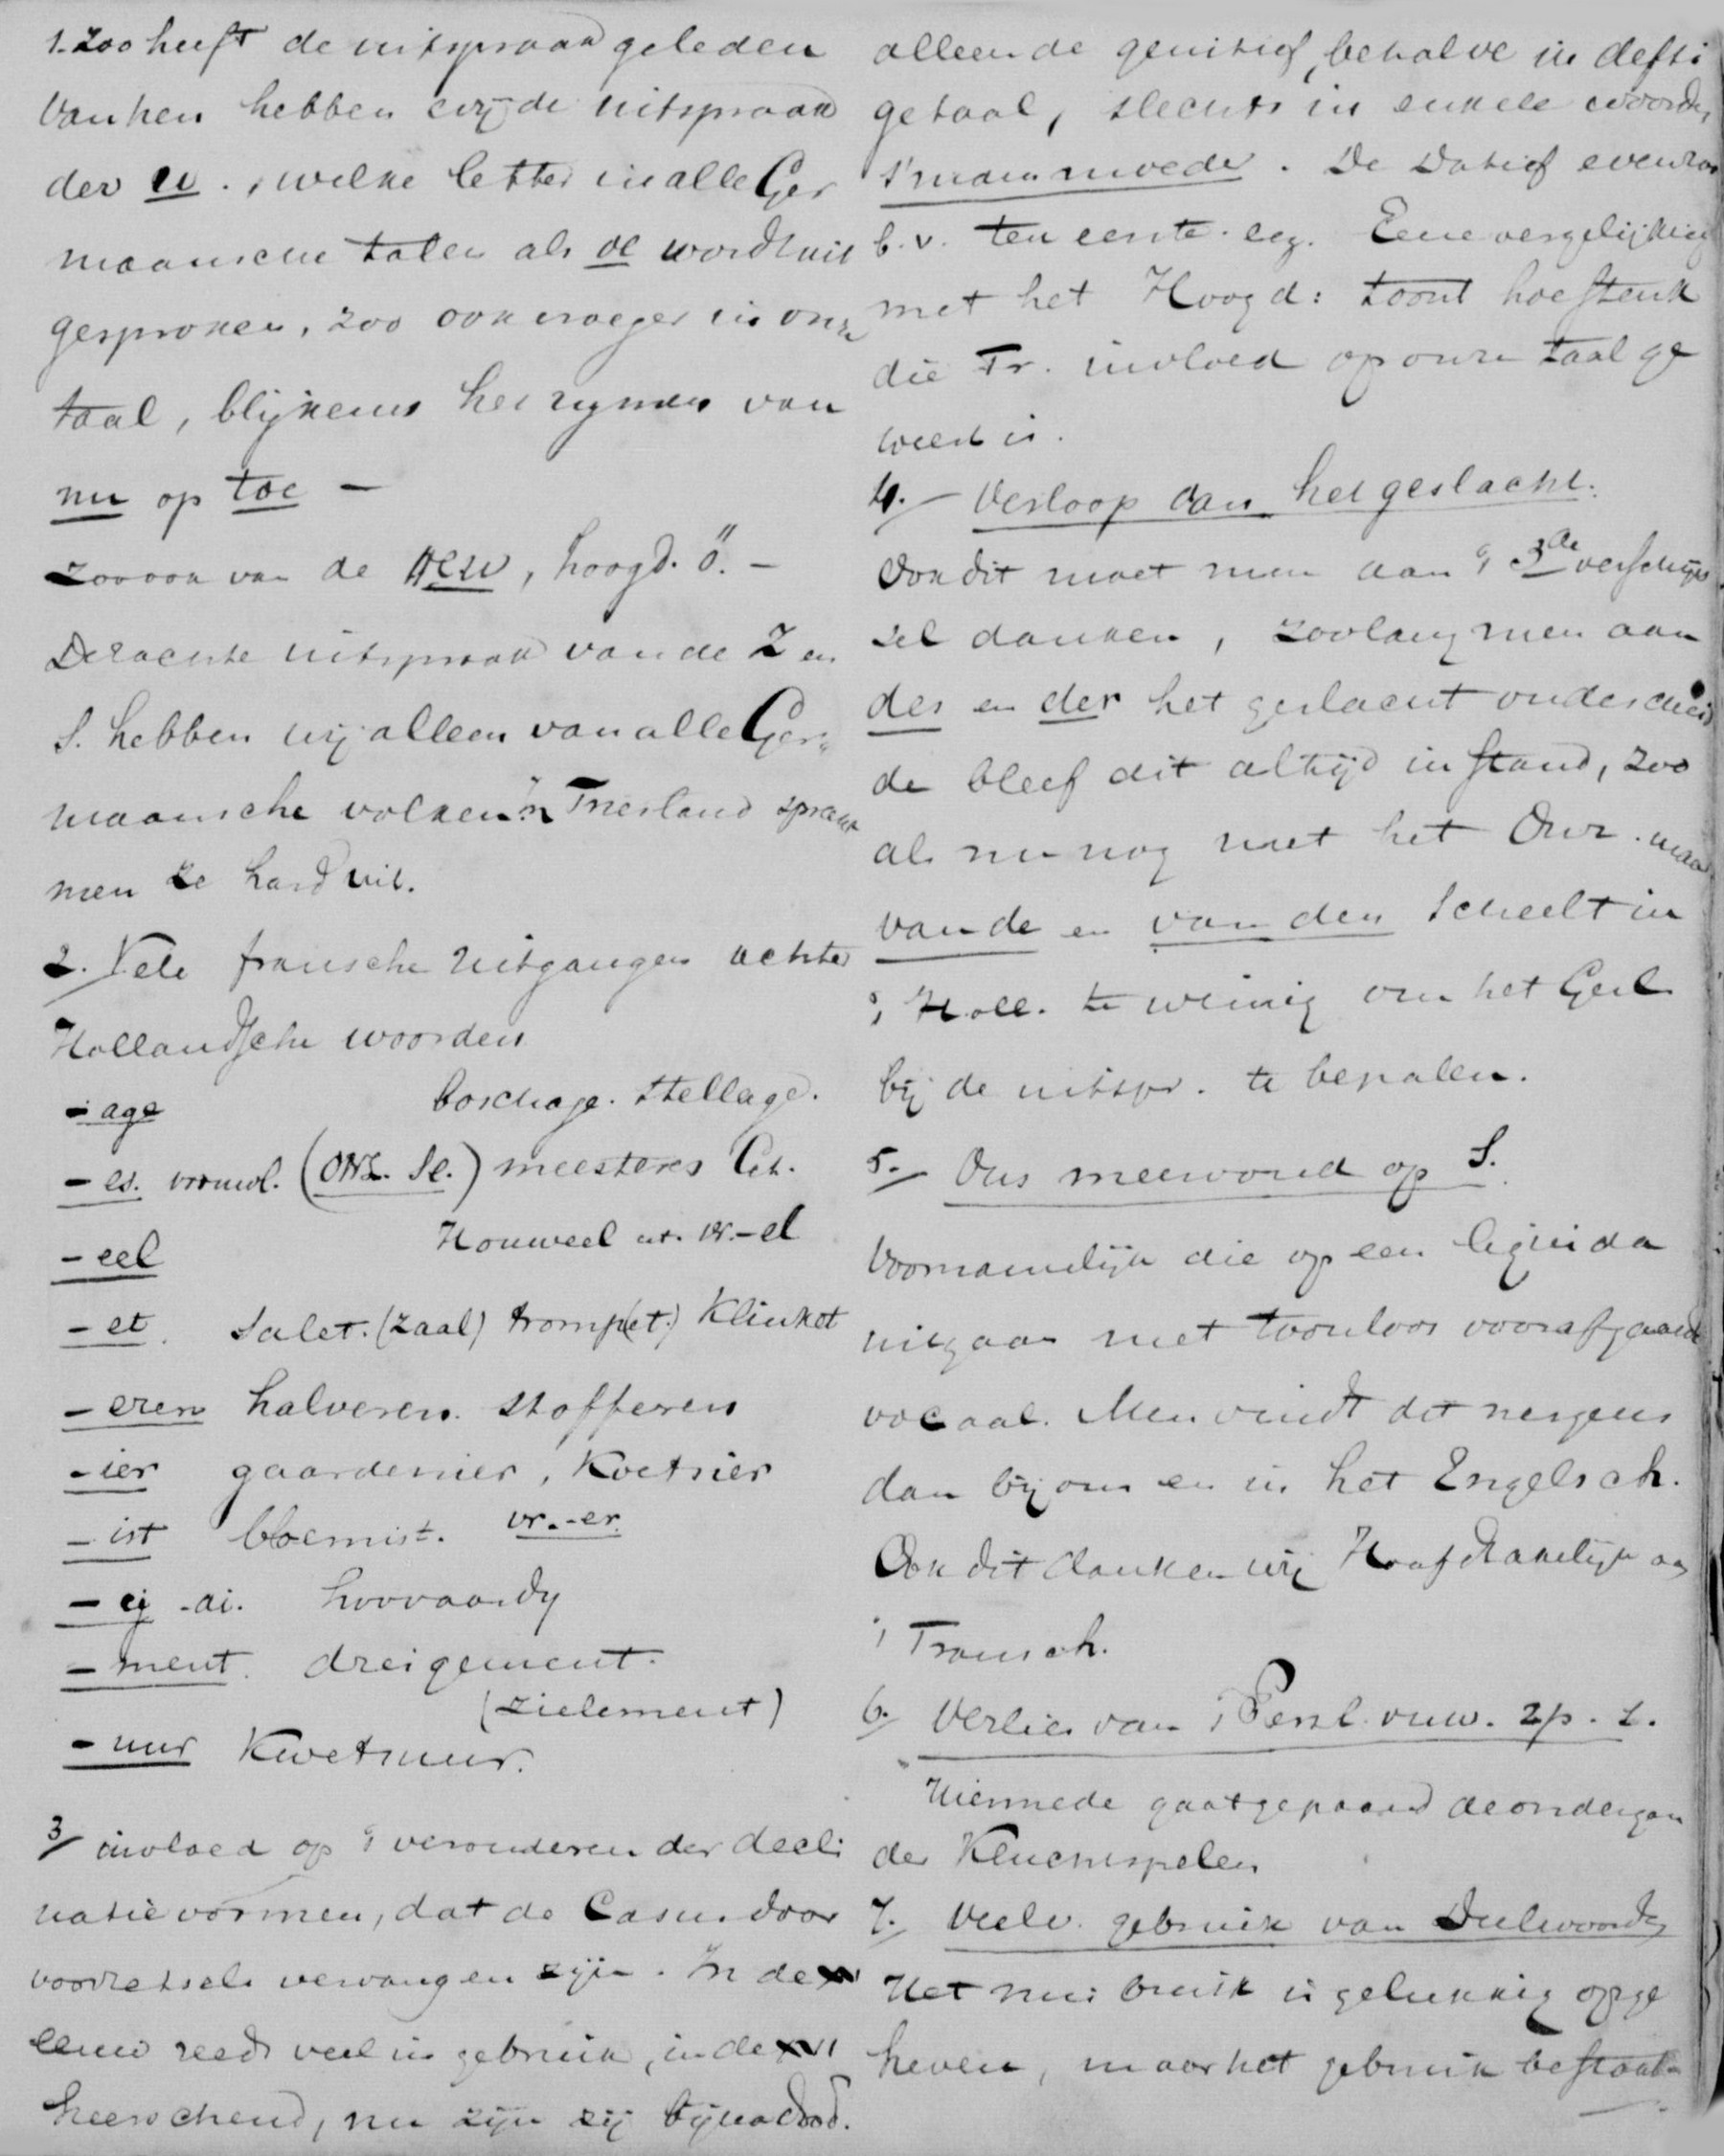 1. Zoo heeft de uitspraak geleden
Van hen hebben wij de uitspraak
der u., welke letter in alle Ger
maansche talen als oe wordt uit
gesproken, zoo ook vroeger in onze
taal, blijkens het rymen van
nu op toe —
zoo ook van de eu, hoogd. ö. —
De zachte uitspraak van de Z en
S. hebben wij alleen van alle Ger„
maansche volken. In Friesland spraak
men ze hard uit.
2. Vele fransche uitgangen achter
Hollandsche woorden
- age boschage. Stellage.
- es. vrouwl. (ONS. Se.) meesteres Ct.
- eel Houweel nt. vr. - el
- et. Salet. (zaal) tromp(et.) Klinket
- eren halveren. stofferen
- ier gaardenier, Koetsier
- ist bloemist. vr. - er.
- ij - ai. hoovaardy
- ment. dreigement.
(zielement)
- uur Kwetsuur.
3/ invloed op 't veranderen der decli
natie vormen, dat de Casus door
voorzetsels vervangen zijn. In de XV
eeuw reeds veel in gebruik, in de XVI
heerschend, nu zijn zij bijna dood.
alleen de genitief, behalve in defti
ge taal, slechts in enkele woorden,
s'mans moeder. De Datief evenzoo
b.v. ten eerste. enz. Eene vergelijking
met het Hoogd: toont hoe sterk
die Fr. invloed op onze taal ge
weest is.
4. — Verloop van het geslacht.
Ook dit moet men aan 't 3de verschijn
sel danken, zoolang men aan
des en der het geslacht onderscheid
de bleef dit altijd in stand, zoo
als nu nog met het Onz. maar
van de en van den scheelt in
't Holl. te weinig om het Gesl.
bij de uitspr. te bepalen.
5. — Ons meervoud op S.
Voornamelijk die op een liquida
uitgaan met toonloos voorafgaand
vocaal. Men vindt dit nergens
dan bij ons en in het Engelsch.
Ook dit danken wij Hoofdzakelijk aan
't Fransch.
6. Verlies van 't Persl. vnw. 2p. s.
Hiermede gaat gepaard de ondergan
der Kluchtspelen
7. Veelv. gebruik van Deelwoorden
Het misbruik is gelukkig opge
heven, maar het gebruik bestaat